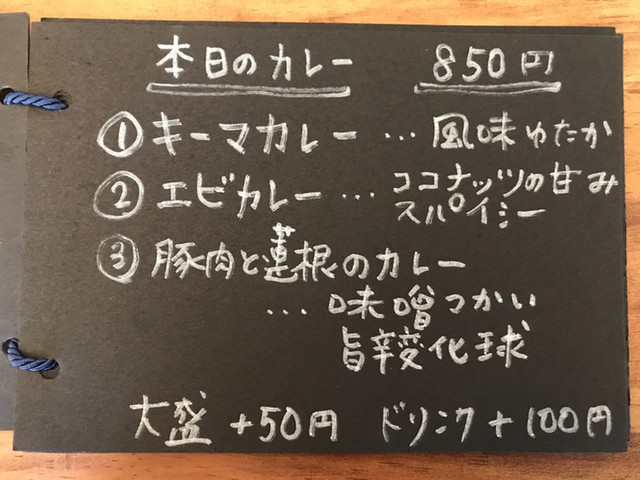 本日のカレー 850円
① キーマカレー … 風味ゆたか
② エビカレー … ココナッツの甘み
スパイシー
③ 豚肉と蓮根のカレー
… 味噌つかい
旨辛変化球
大盛 +50円 ドリンク + 100円